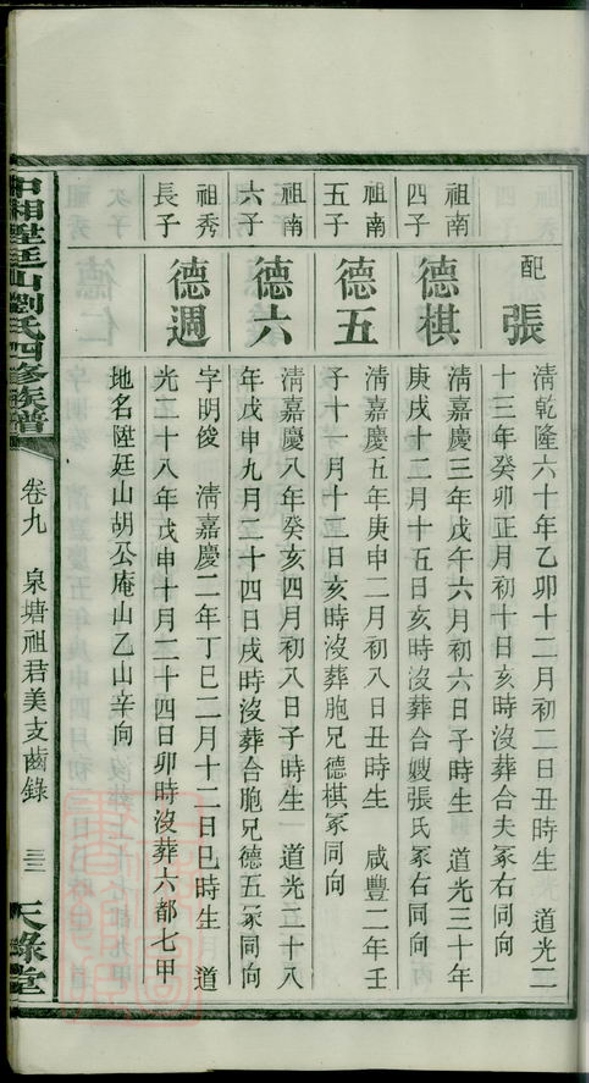 配
張
清乾隆六十年乙卯十二月初二日丑時生 道光二
十三年癸卯正月初十日亥時沒葬合夫冢右同向
祖南
四子
德棋
清嘉慶三年戊午六月初六日子時生 道光三十年
庚戌十二月十五日亥時沒葬合嫂張氏冢右同向
祖南
五子
德五
清嘉慶五年庚申二月初八日丑時生 咸豐二年壬
子十一月十二日亥時沒葬胞兄德棋冢同向
祖南
六子
德六
清嘉慶八年癸亥四月初八日子時生 道光二十八
年戊申九月二十四日戌時沒葬合胞兄德五冢同向
祖秀
長子
德週
字明俊 清嘉慶二年丁巳二月十二日巳時生 道
光二十八年戊申十月二十四日卯時沒葬六都七甲
地名陞廷山胡公庵山乙山辛向
中湘陞廷山劉氏四修族譜
卷九 泉塘祖君美支齒錄
天祿堂